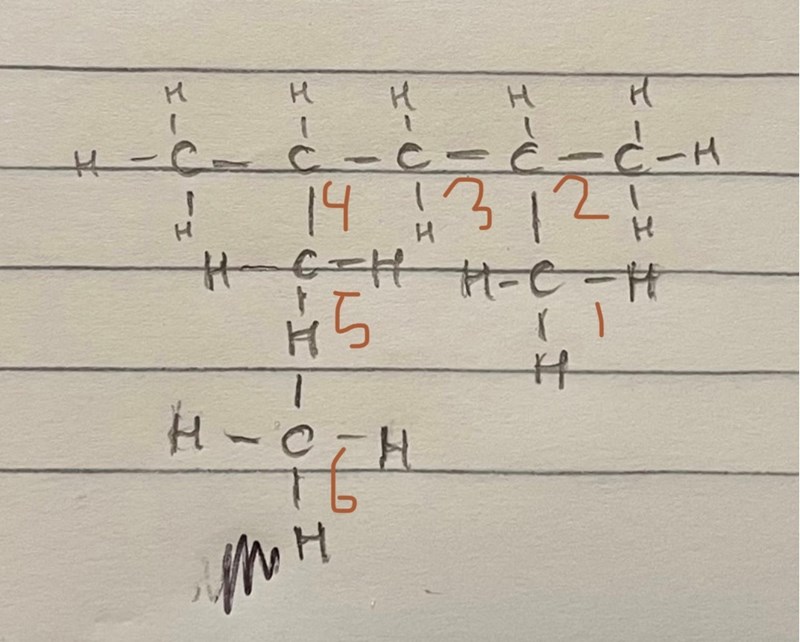 H H H H H
H - C - C - C - C - C - H
4 3 2
H H H
H - C - H H - C - H
5 1
H H
H - C - H
6
H